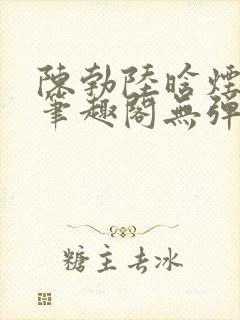 陳勃陸晗煙
筆趣閣無彈
糖主去冰